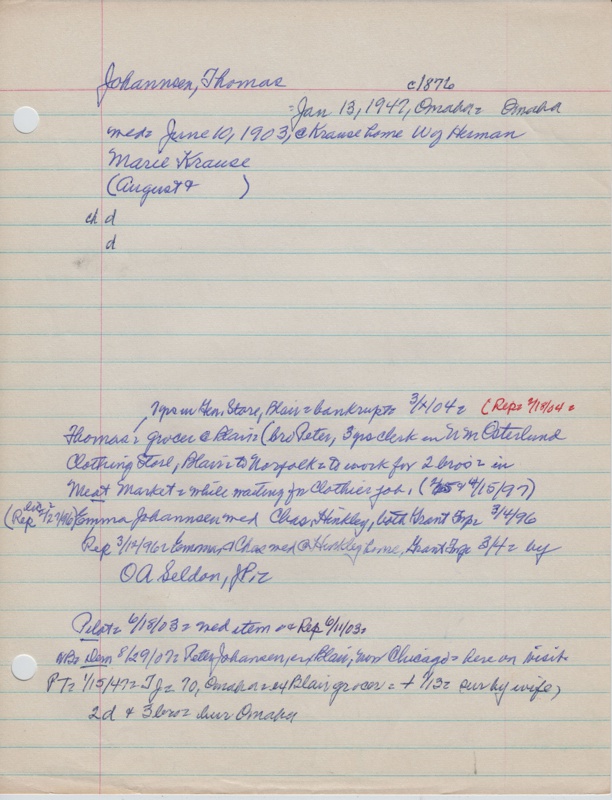 Johannsen, Thomas c1876
= Jan 13, 1947, Omaha = Omaha
med = June 10, 1903, @ Krause home Wg Herman
Marie Krause
(August & )
ch d
d
7 yrs in Gen. Store, Blair = bankrupt = 3/4/04 = (Rep = 2/18/04 =
Thomas = grocer @ Blair = (bro Peter, 3 yrs clerk in Wm Osterlund
Clothing Store, Blair = to Norfolk = to work for 2 bros = in
Meat Market = while waiting for Clothier job. ( 4/15/97)
(Rep 2/27/96) Emma Johannsen med Chas. Hinkley, both Grant Twp 3/4/96
Rep 3/12/96 = Emma & Chas med @ Hinkley home, Grant Twp 3/4 = by
O A Seldon, JP =
Pilot = 6/18/03 = med item & Rep 6/11/03 =
Dem 8/29/07 = Peter Johansen, ex Blair, now Chicago = here on visit
PT = 1/15/47 = TJ = 70, Omaha = ex Blair grocer = + 1/13 = sur by wife,
2 d & 3 bros = bur Omaha